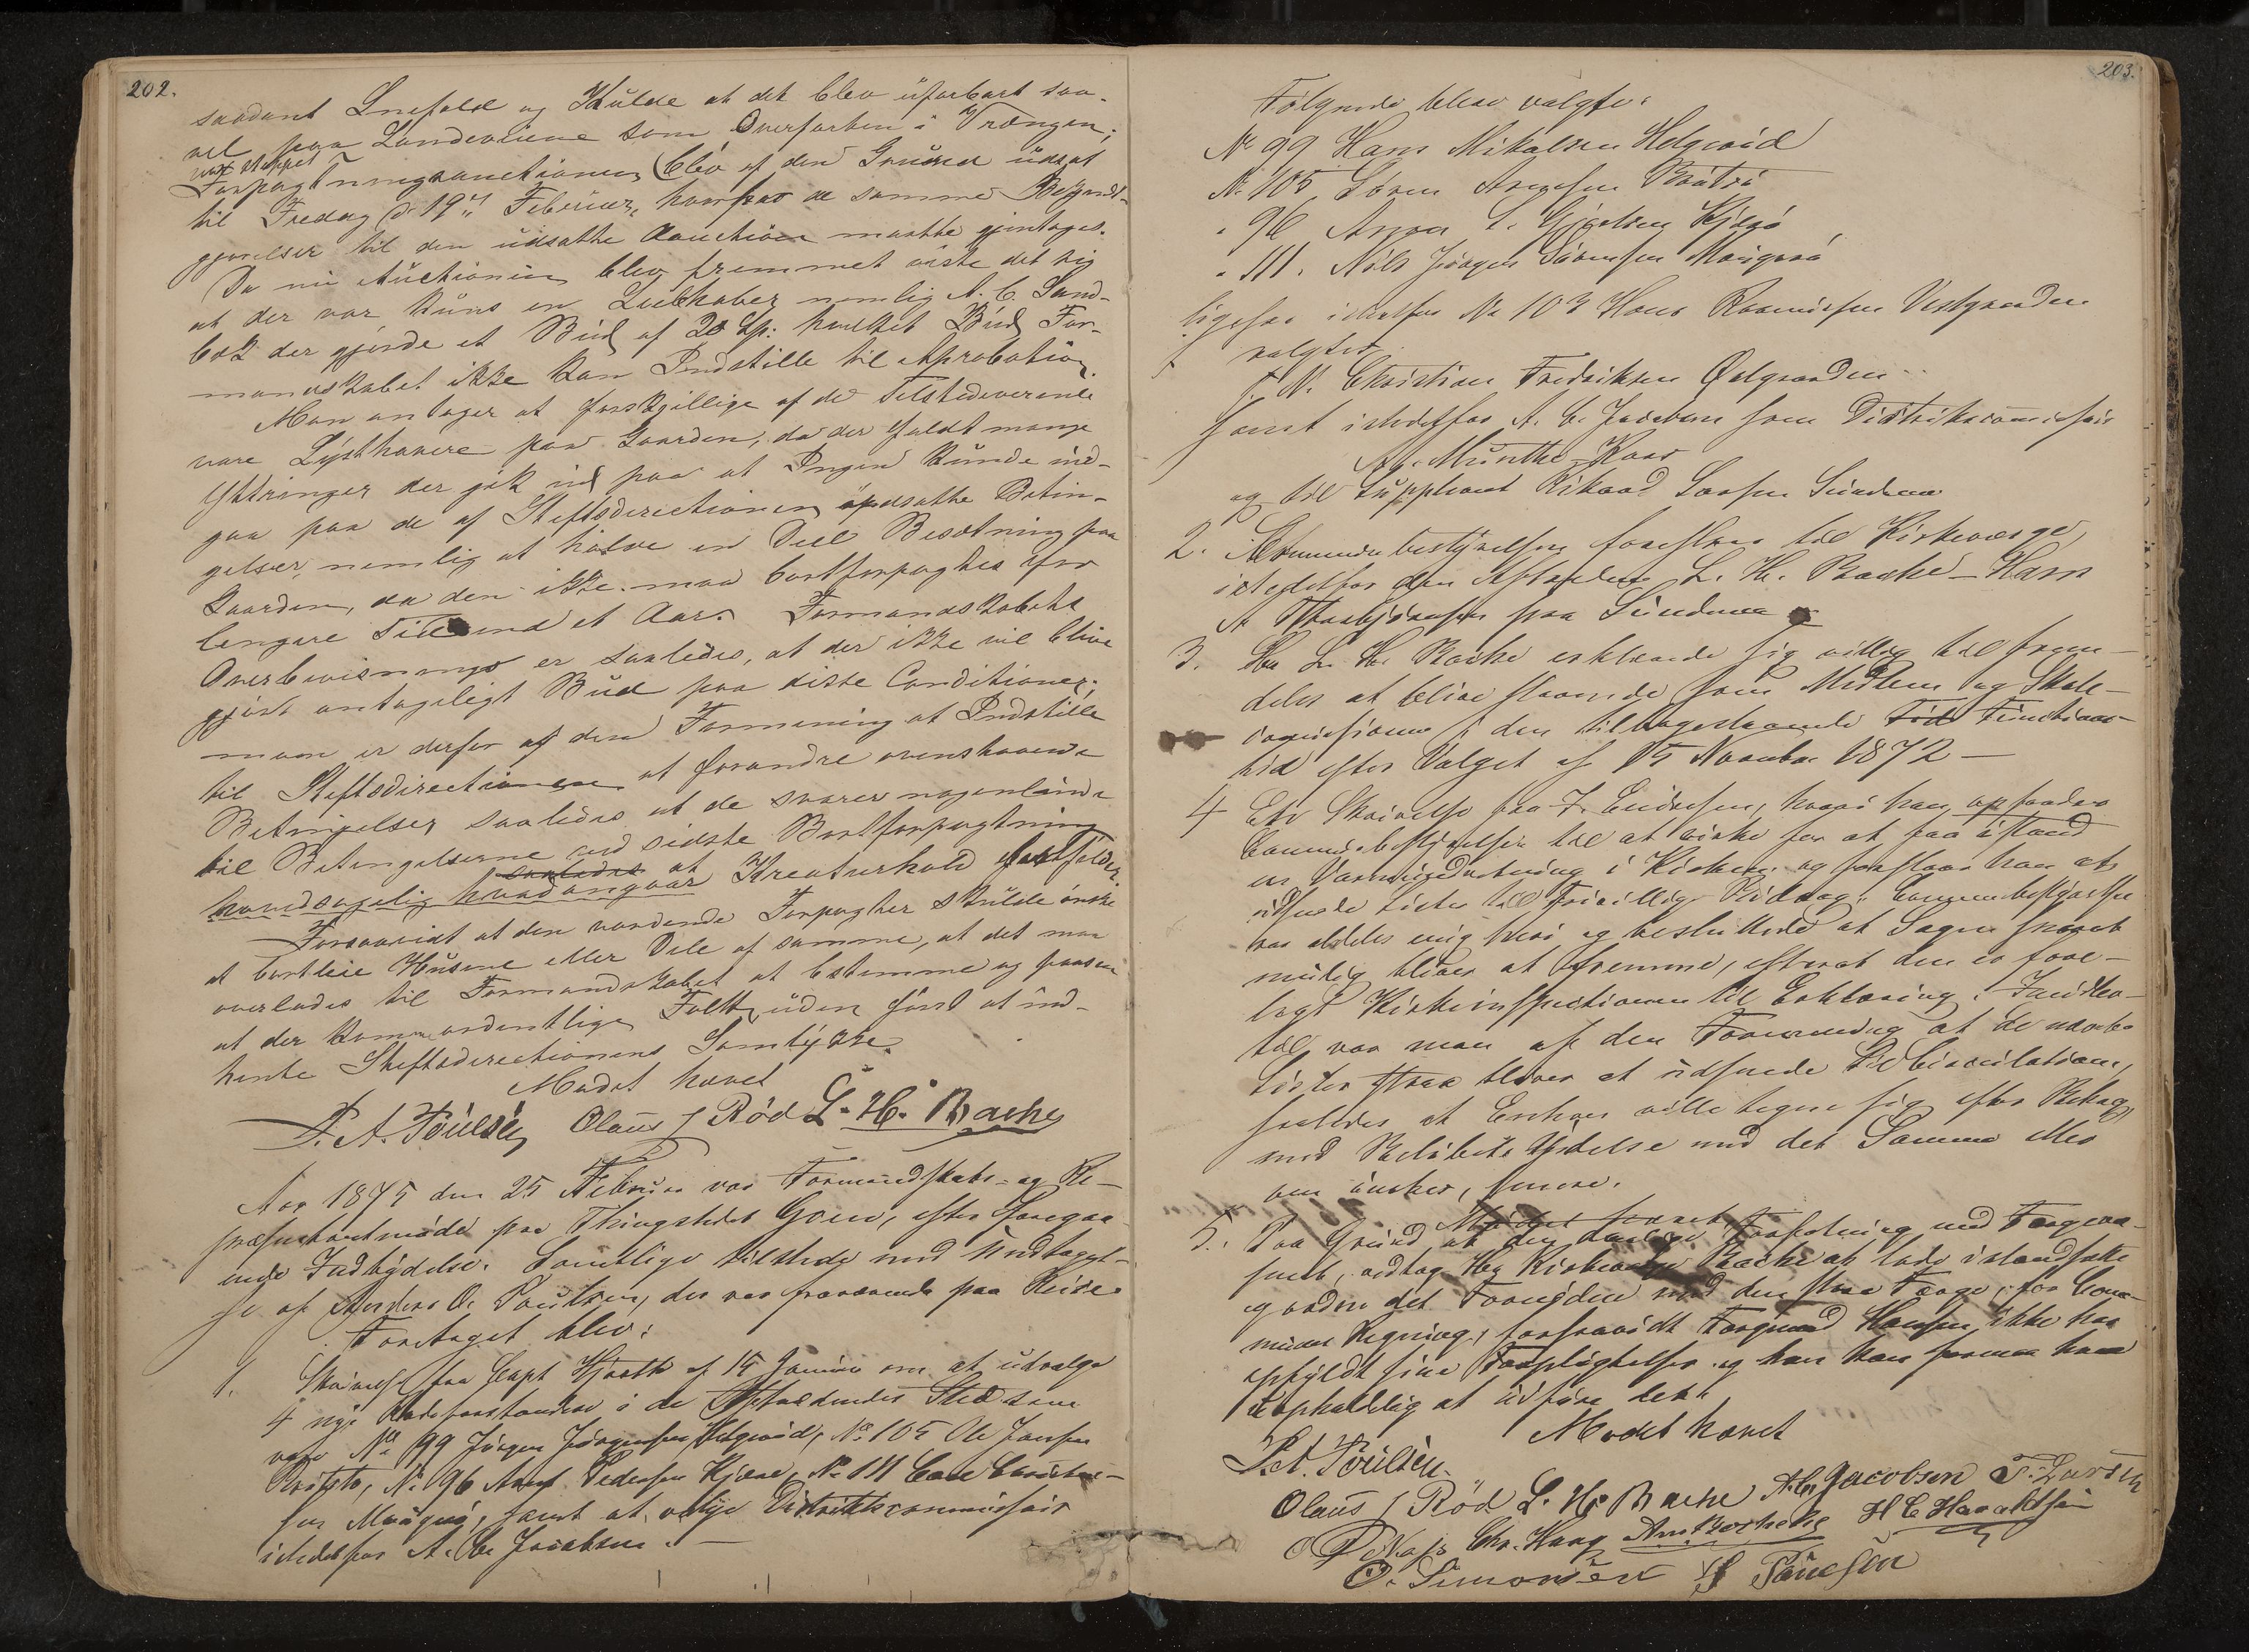 202.
saadant Snefald og Kulde at det blev ufarbart saa-
vel paa Landeveiene som Overfarten i Vrængen;
var stoppet
Forpagtningsauctionen blev af den Grund udsat
til Fredag d. 19de Februar, hvorfor de samme Bekjendt-
gjørelser til den udsatte Auction maatte gjentages.
Da nu Auctionen blev fremmet viste det sig
at der var kuns en Liebhaber nemlig A. C. Sand-
bek der gjorde et Bud af 20 Sp. hvilket Bud For-
mandskabet ikke kan Indstille til Aprobation.
Man antager at forskjellige af de Tilstedeverende
vare Lysthavere paa Gaarden, da der faldt mange
Yttringer der gik ud paa at Ingen kunde ind-
gaa paa de af Stiftsdirectionen opsatte Betin-
gelser, nemlig at holde en Deel Besætning paa
Gaarden, da den ikke maa bortforpagtes for
lengere Tid end et Aar. Formandskabets
Overbevisning er saaledes, at der ikke vil blive
gjort antageligt Bud paa disse Conditioner;
man er derfor af den Formening at Indstille
til Stiftsdirectionen at forandre ovenstaaende
Betingelser saaledes at de svarer nogenlunde
til Betingelserne ved sidste Bortforpagtning
saaledes at
hovedsagelig hvadangaar Kreaturhold bortfalder.
Forsaavidt at den vordende Forpagter skulde ønske
at bortleie Husene eller Dele af samme, at det maa
overlades til Formandskabet at bestemme og paasee
at der kommer ordentlige Folk, uden først at ind-
hente Stiftsdirectionens Samtykke.
Mødet hævet
P. A. Poulsen Olaus J Rød L. H. Bache
Aar 1875 den 25 Februar var Formandskabs- og Re-
præsentantmøde paa Thingstedet Grew, efter foregaa-
ende Indbydelse. Samtlige tilstede med Undtagel-
se af Anders O. Poulsen, der var fraværende paa Reise.
Foretaget blev:
1. Skrivelse fra Capt Hjorth af 15 Januar om at udvalge
4 nye Rodeforstandere i de Afskedendes Sted som
vare No 99 Jørgen Jørgensen Helgerød, No 105 Ole Jansen
Bratstø, No 96 Anders Pedersen Kjære, No 111 Carl Christen-
sen Maagerø, samt at vælge Distriktscommissair
istedetfor A. C. Jacobsen. —
203.
Følgende blev valgte:
No 99 Hans Mikalsen Helgerød
No 105 Søren Bråtø
" 96 Kjærø
" 111. Nils Jørgen Sørensen Maagerø
ligesaa istedfor No 103 Hans Rasmussen Vestgaarden
valgtes
J. N. Christian Fredriksen Ødegaarden
samt istedetfor A. C. Jacobsen som Distriktscommissair
Munthe-Kaas
og til Suppleant Rikard Larsen Sundene
2. Communebestyrelsen foreslaar til Kirkeværge
istedetfor den Aftrædende L. H. Bache — Hans
A Thorbjørnsen paa Sundene
3. Hr L. H. Bache erklærede sig villig til frem-
deles at blive staaende som Medlem og Skole-
comissionen i den tilbagestaaende Tid Functions-
tid efter Valget af 15 November 1872 —
4 Etv Skrivelse fra J. Endresen, hvori han opfordrer
Communebestyrelsen til at virke for at faa istand
en Varmeindretning i Kirken og foreslaar han at
udsende Lister til Frivillig Bidrag. Communebestyrelsen
var aldeles enig heri og besluttede at Sagen snarest
mulig bliver at fremme, efterat den er fore-
lagt Kirkeinspectionen til Erklæring. Imidler-
tid var man af den Formening at de nævnte
Lister strax bliver at udsende til Circulation,
saaledes at Enhver ville tegne sig efter Behag
med Beløbets Ydelse med det Samme eller
om ønskes, senere.
Mødet hævet
5. Paa Grund af den daarlige Forfatning med Færge-
sted, vedtog Hr Kirkeværge Bache at lade istandsætte
og ordne det Fornødne med den store Færge, for Com-
munens Regning, forsaavidt Færgemand Hansen ikke har
opfyldt sine Forpligtelser og han kan formaa ham
uopholdelig at udføre dette
Mødet hævet
P. A. Poulsen.
Olaus J Rød L. H. Bache A. C. Jacobsen T. Larsen
Chr. Haug H C Haraldsen
O. Simonsen Poulsen